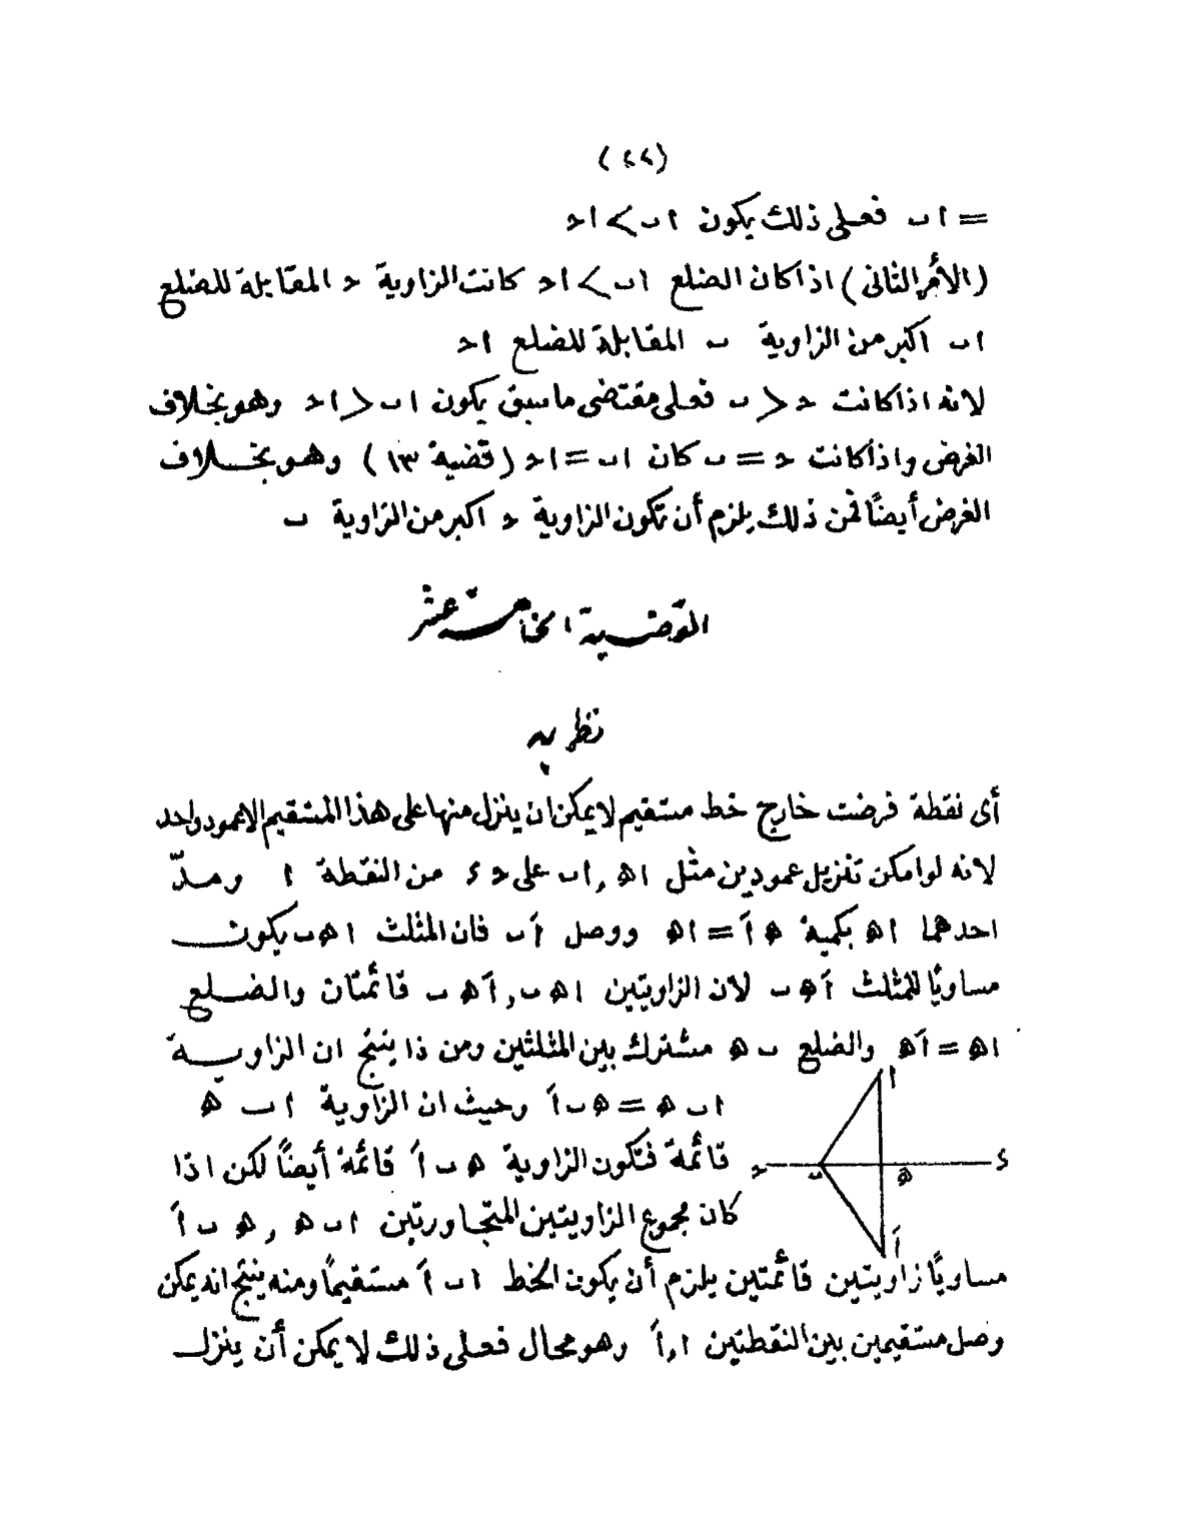 (٢٤)
= ا ب فعلى ذلك يكون ا ب > ا ح
(الأمر الثانى) اذا كان الضلع ا ب > ا ح كانت الزاوية ح المقابلة للضلع
ا ب اكبر من الزاوية ب المقابلة للضلع ا ح
لانه اذا كانت ح < ب فعلى مقتضى ما سبق يكون ا ب < ا ح وهو بخلاف
الغرض واذا كانت ح = ب كان ا ب = ا ح (قضية ١٣) وهو بخلاف
الغرض أيضًا فمن ذلك يلزم أن تكون الزاوية ح اكبر من الزاوية ب
القضية الخامسة عشر
نظرية
أى نقطة فرضت خارج خط مستقيم لا يمكن ان ينزل منها على هذا المستقيم الا عمود واحد
لانه لو امكن تنزيل عمودين مثل ا ه , ا ب على ح ء من النقطة ا ومدّ
احدهما ا ه بكمية ه اَ = ا ه ووصل اَ ب فان المثلث ا ه ب يكون
مساويًا للمثلث اَ ه ب لان الزاويتين ا ه ب , اَ ه ب قائمتان والضلع
ا ه = اَ ه والضلع ب ه مشترك بين المثلثين ومن ذا ينتج ان الزاوية
ا ب ه = ه ب اَ وحيث ان الزاوية ا ب ه
قائمة فتكون الزاوية ه ب اَ قائمة أيضًا لكن اذا
كان مجموع الزاويتين المتجاورتين ا ب ه , ه ب اَ
ا
ح ب ه ء
اَ
مساويًا زاويتين قائمتين يلزم أن يكون الخط ا ب اَ مستقيمًا ومنه ينتج انه يمكن
وصل مستقيمين بين النقطتين ا , اَ وهو محال فعلى ذلك لا يمكن أن ينزل